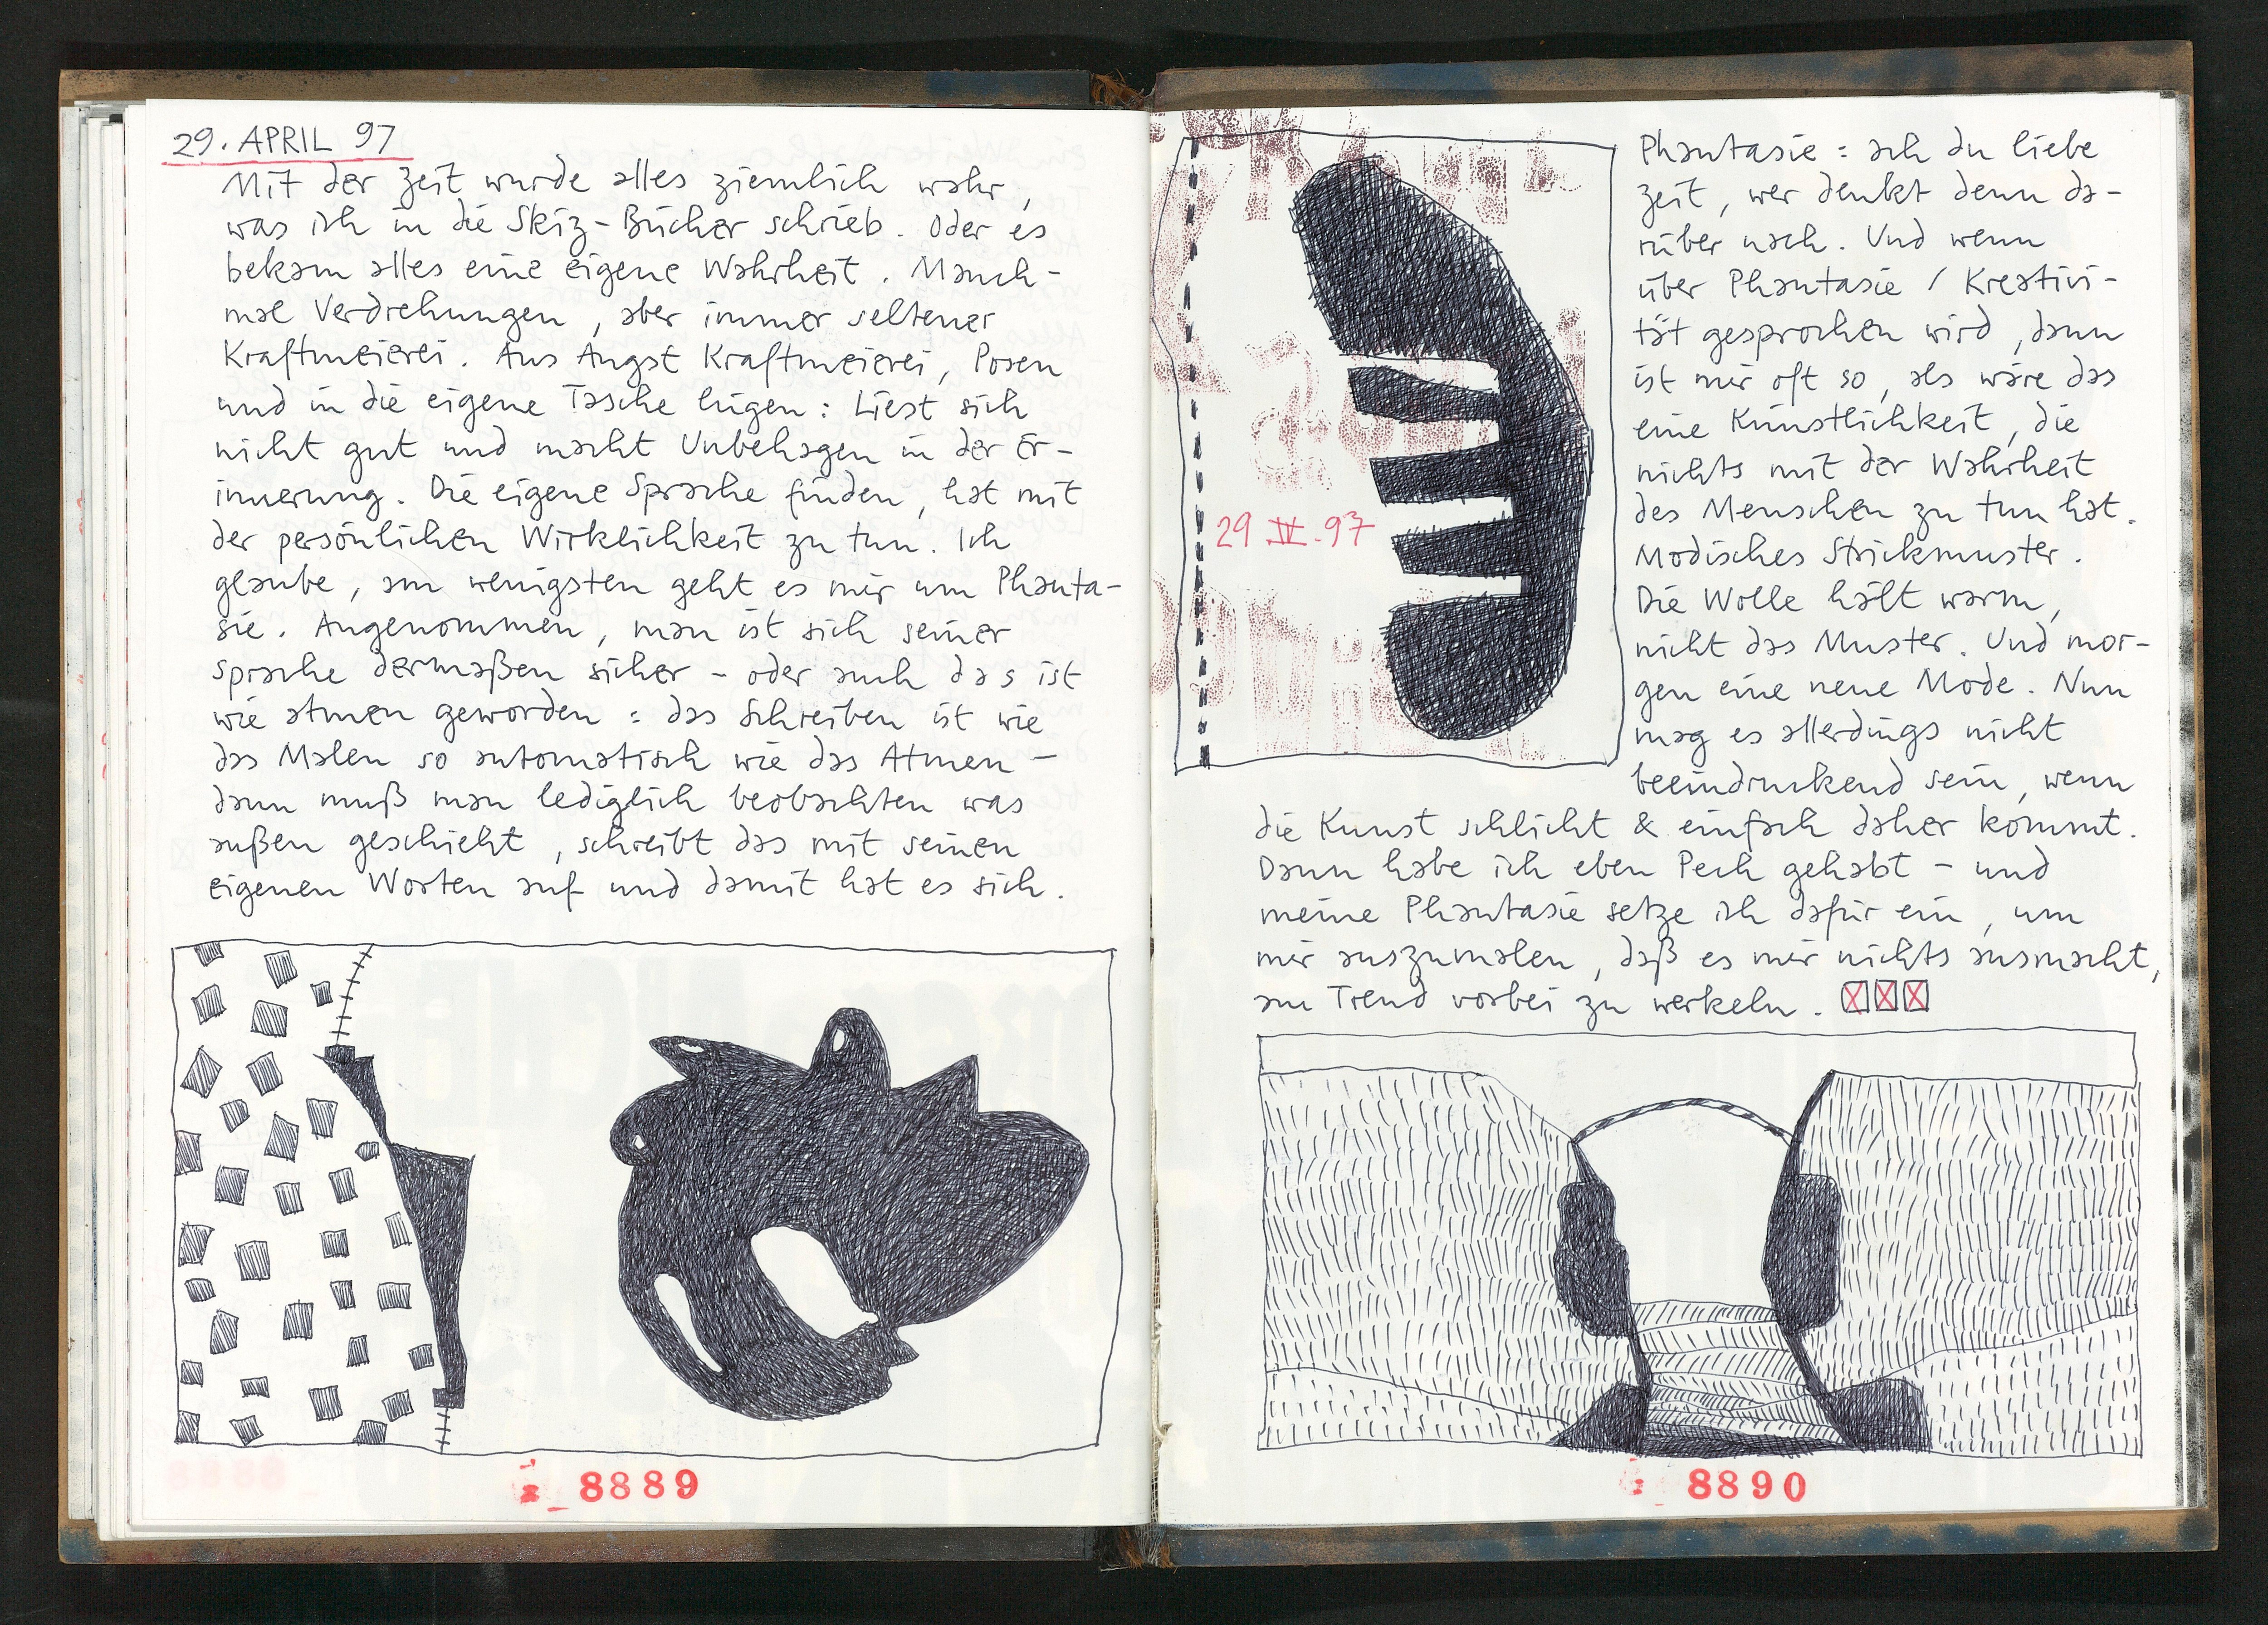 29. APRIL 97
Mit der Zeit wurde alles ziemlich wahr,
was ich in die Skiz-Bücher schrieb. Oder es
bekam alles eine eigene Wahrheit. Manch-
mal Verdrehungen, aber immer seltener
Kraftmeierei. Aus Angst Kraftmeierei, Posen
und in die eigene Tasche lügen: Liest sich
nicht gut und macht Unbehagen in der Er-
innerung. Die eigene Sprache finden, hat mit
der persönlichen Wirklichkeit zu tun. Ich
glaube, am wenigsten geht es mir um Phanta-
sie. Angenommen, man ist sich seiner
Sprache dermaßen sicher - oder auch das ist
wie atmen geworden: das Schreiben ist wie
das Malen so automatisch wie das Atmen -
dann muß man lediglich beobachten was
außen geschieht, schreibt das mit seinen
eigenen Worten auf und damit hat es sich.
8889
29 IV. 97
Phantasie: ach du liebe
Zeit, wer denkt denn da-
rüber nach. Und wenn
über Phantasie / Kreativi-
tät gesprochen wird, dann
ist mir oft so, als wäre das
eine Künstlichkeit, die
nichts mit der Wahrheit
des Menschen zu tun hat.
Modisches Strickmuster.
Die Wolle hält warm,
nicht das Muster. Und mor-
gen eine neue Mode. Nun
mag es allerdings nicht
beeindruckend sein, wenn
die Kunst schlicht & einfach daher kommt.
Dann habe ich eben Pech gehabt - und
meine Phantasie setze ich dafür ein, um
mir auszumalen, daß es mir nichts ausmacht,
am Trend vorbei zu werkeln.
8890